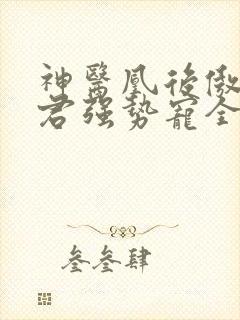 神醫鳳後傲
君強勢寵全
叁叁肆